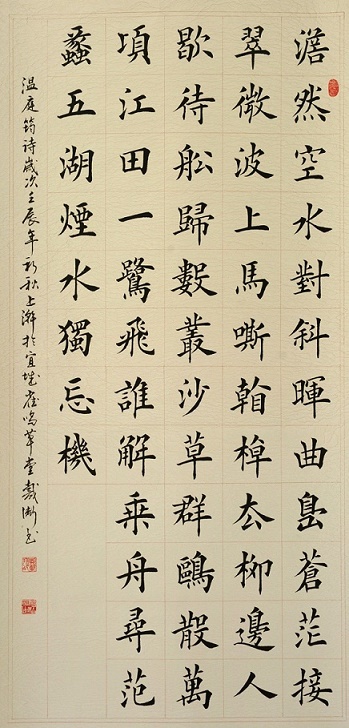 澹然空水對斜暉曲島蒼茫接
翠微波上馬嘶看棹去柳邊人
歇待舩歸數叢沙草群鷗散萬
頃江田一鷺飛誰解乘舟尋范
蠡五湖煙水獨忘機
温庭筠詩歲次壬辰年初秋上澣於宜城雀鳴草堂